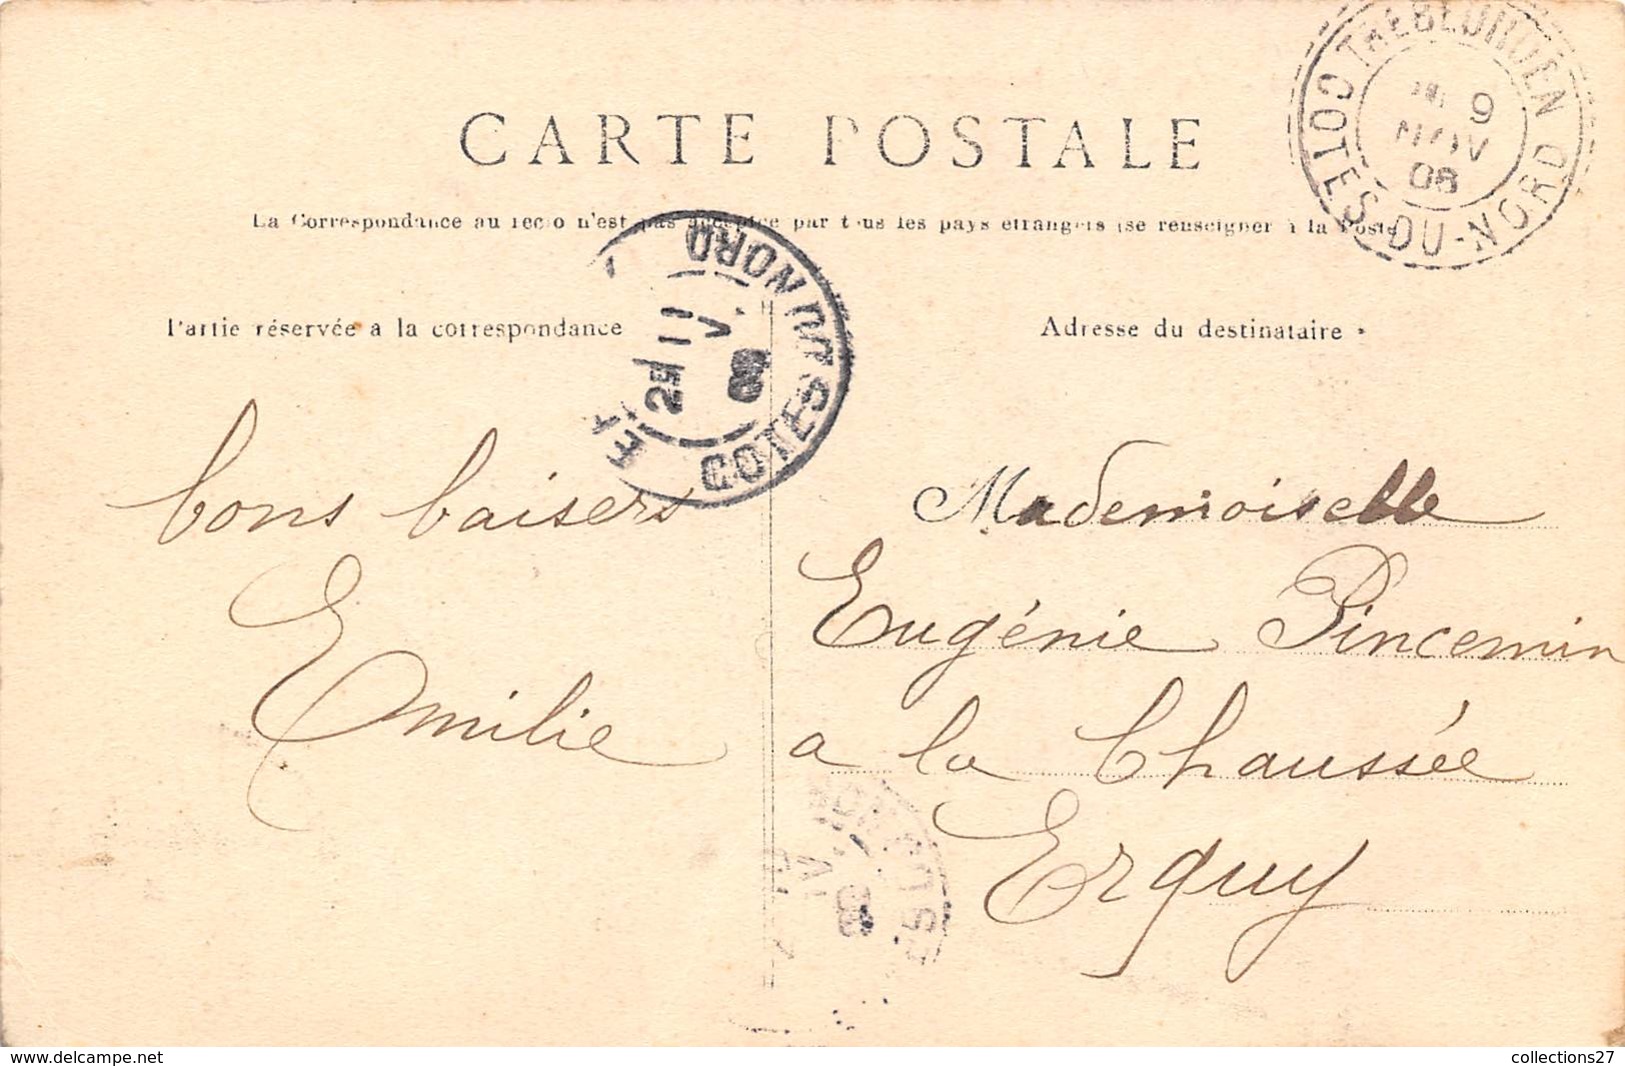 CARTE POSTALE
La Correspondance au recto n'est pas acceptée par tous les pays étrangers (se renseigner à la Poste
Partie réservée a la correspondance
Adresse du destinataire
COTES-DU-NORD
9
NOV
08
COTES DU NORD
2E
11
08
bons baisers
Emilie
Mademoiselle
Eugénie Pincemin
a la Chaussée
Erquy
www.delcampe.net
collections27